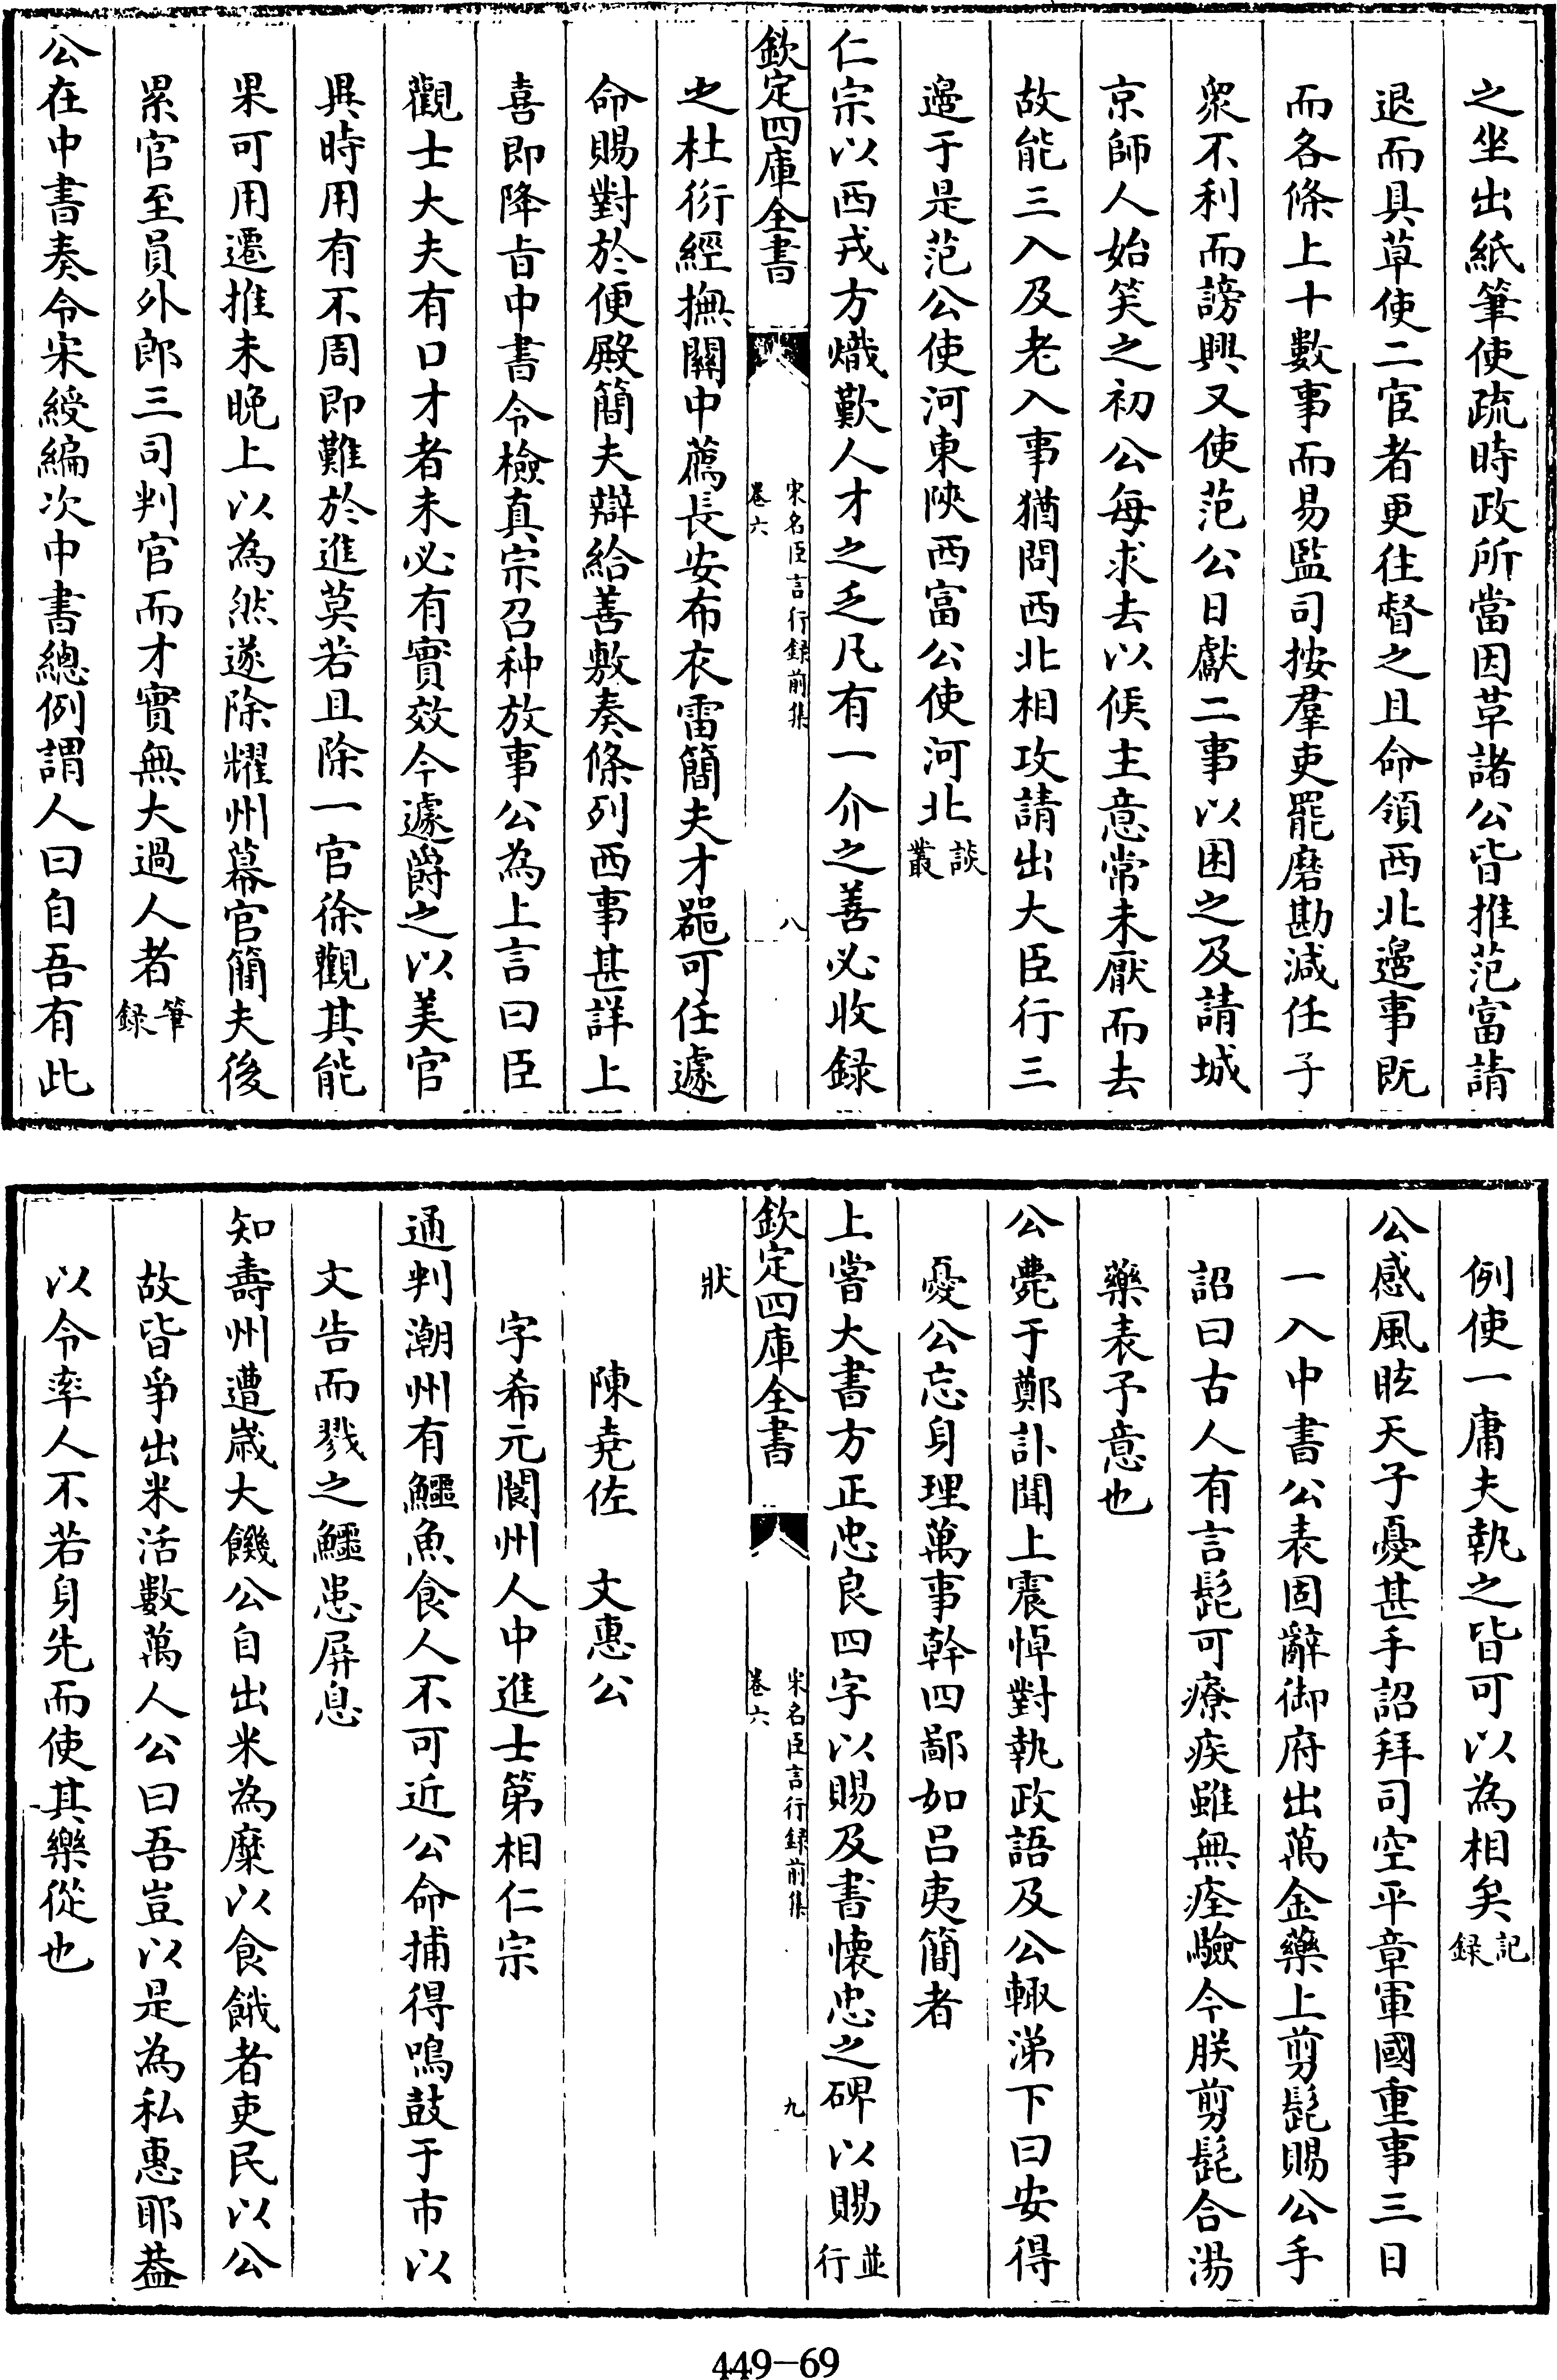 之坐出紙筆使疏時政所當因革諸公皆推范富請
退而具草使二宦者更往督之且命領西北邊事既
而各條上十數事而易監司按羣吏罷磨勘減任子
衆不利而謗興又使范公日獻二事以困之及請城
京師人始笑之初公每求去以候主意常未厭而去
故能三入及老入事猶問西北相攻請出大臣行三
邊于是范公使河東陜西富公使河北談叢
仁宗以西戎方熾歎人才之乏凡有一介之善必收録
欽定四庫全書 宋名臣言行録前集 卷六 八
之杜衍經撫關中薦長安布衣雷簡夫才噐可任遽
命賜對於便殿簡夫辯給善敷奏條列西事甚詳上
喜即降旨中書令檢真宗召种放事公為上言曰臣
觀士大夫有口才者未必有實效今遽爵之以美官
異時用有不周即難於進莫若且除一官徐觀其能
果可用遷推未晚上以為然遂除耀州幕官簡夫後
累官至員外郎三司判官而才實無大過人者筆録
公在中書奏令宋綬編次中書總例謂人曰自吾有此
例使一庸夫執之皆可以為相矣記録
公感風眩天子憂甚手詔拜司空平章軍國重事三日
一入中書公表固辭御府出萬金藥上剪髭賜公手
詔曰古人有言髭可療疾雖無痊驗今朕剪髭合湯
藥表予意也
公薨于鄭訃聞上震悼對執政語及公輙涕下曰安得
憂公忘身理萬事幹四鄙如吕夷簡者
上嘗大書方正忠良四字以賜及書懐忠之碑以賜並行
欽定四庫全書 宋名臣言行録前集 卷六 九
狀
陳堯佐 文惠公
字希元閬州人中進士第相仁宗
通判潮州有鱷魚食人不可近公命捕得鳴鼓于市以
文告而戮之鱷患屏息
知壽州遭嵗大饑公自出米為糜以食餓者吏民以公
故皆爭出米活數萬人公曰吾豈以是為私惠耶葢
以令率人不若身先而使其樂從也
449-69